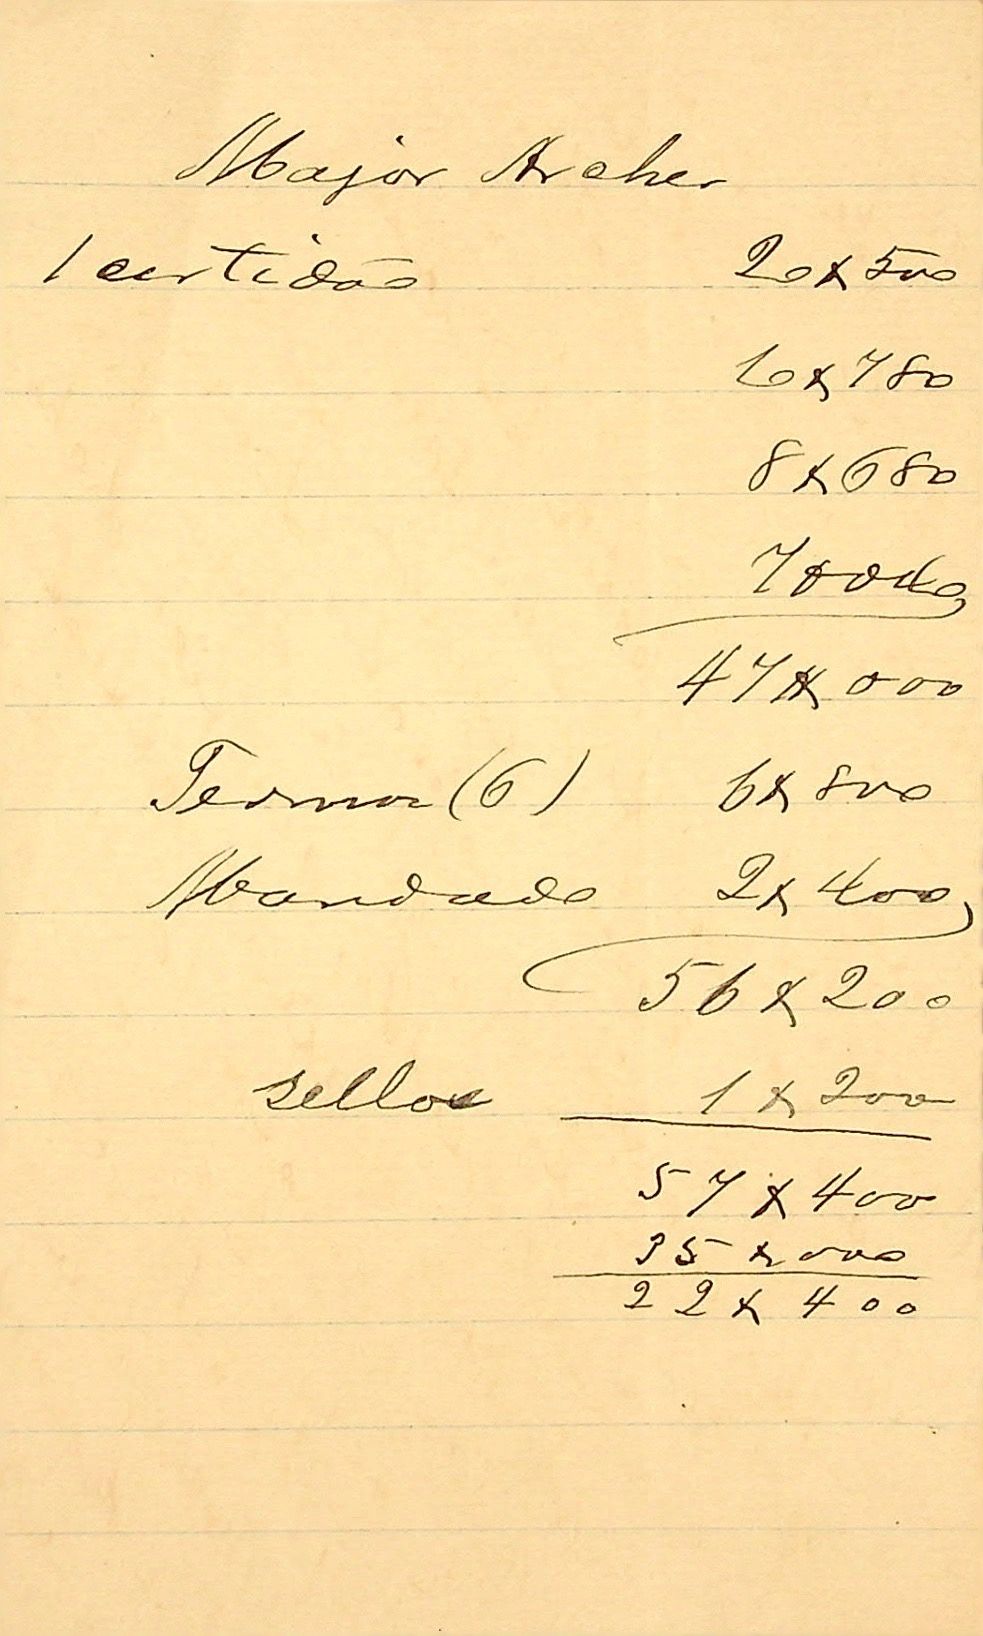 Major Archer
1 certidão 20$500
10$780
8$680
7$040
47$000
Termos (6) 6$800
Mandado 2$400
56$200
sellos 1$200
57$400
35$000
22$400